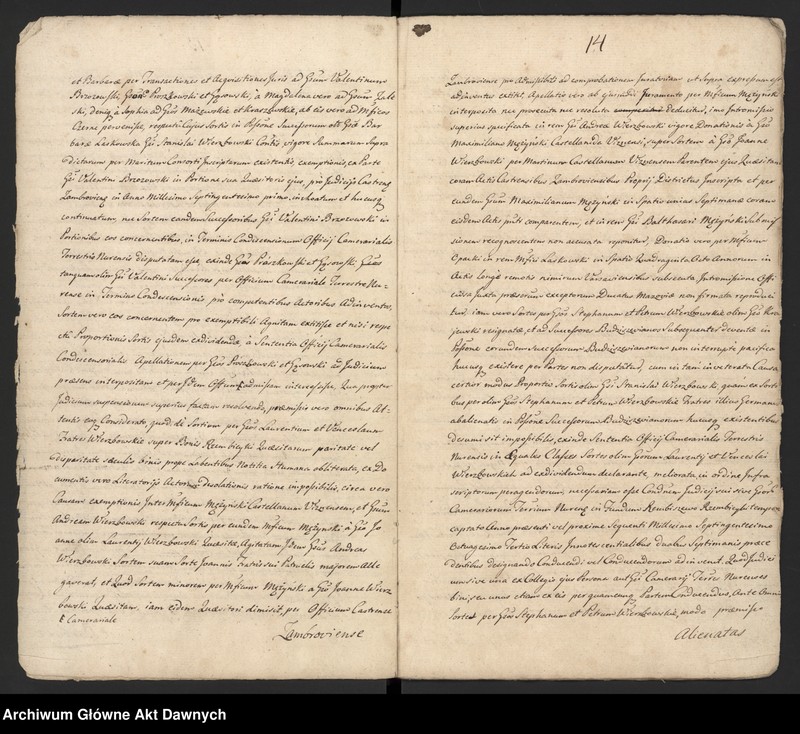 et Barbaræ per Transactiones et Acquisitiones Juris ad Gsum Valentinum
Brzozowski, Proszkowski et Gzowski, à Magdalena vero ad Gsum Zale
ski, deniq à Sophia ad Gsos Mazewskie et Kraszewskie, ab eis vero ad Mficos
Czerne pervenisse, respectu Cujus Sortis in Possone Successorum olim Gsæ Bar
baræ Laskowska Gsi Stanislai Wierzbowski Contis vigore Summarum Supra
dictarum per Maritum Consorti Inscriptarum existentis, exemptionis, ex Parte
Gsi Valentini Brzozowski in Portione sua Quæsitoris ejus, prò Judicijs Castren
Zambrovien in Anno Millesimo Septingentesimo primo, inchoatum et hucusq
continuatum, nec Sortem eandem Successoribus Gsi Valentini Brzozowski in
Portionibus eos concernentibus, in Terminis Condescensionum Officij Cameralis
Terrestris Nurensis disputatam esse, exinde Gsos Prószkowski et Gzowski
tanquam olim Gsi Valentini Successores per Officium Camerale Terrestre Nu-
rense in Termino Condescensionis, prò competentibus Actoribus Adinventos,
Sortem vero eos concernentem pro exemptibili Agnitam extitisse et nisi respe
ctu Proportionis Sortis ejusdem exdividendæ, à Sententia Officij Cameralis
Condescensorialis Apellationem per Gsos Proszkowski et Gzowski ad Judicium
præsens interpositam et per Officium admissam intercessisse, Qua propter
Judicium suspensivum superius factum resolvendo, præmissis vero omnibus At-
tentis Considerato quod de Sortium per Gsos Laurentium et Venceslaum
Fratres Wierzbowskie super Bonis Rembiszki Quæsitarum paritate vel
disparitate sæculis binis prope Labentibus Notitia Humana obliterata, ex Do
cumentis vero Literatorijs Actorum Desolationis ratione impossibilis, circa vero
Causam exemptionis Inter Mficum Męzynski Castellanum Viznensem, et Gsum
Andream Wierzbowski respectu Sortis per eundem Mficum Męzynski à Gso Jo
anne olim Laurentij Wierzbowski Quæsitæ, Agitatam Idem Gsus Andreas
Wierzbowski Sortem suam Sorte Joannis Fratris sui Patruelis majorem Alle
gaverat, et Quod Sortem minorem per Mficum Męzynski à Gso Joanne Wierz
bowski Quæsitam, iam eidem Quæsitori dimisit, per Officium Castrense
& Camerariale
Zambroviense
14
Zambroviense pro Admissibili ad comprobationem Juratoriam ut Supra expressum est
adinventus extitit, Apellatio vero ab ejusmodi Juramento per Mficum Męzynski
interposita nec prosecuta nec resoluta deducitur, imo Intromissio
superius specificata in rem Gsi Andreæ Wierzbowski vigore Donationis à Gso
Maximiliano Męzynski Castellanida Viznensi, super Sortem à Gso Joanne
Wierzbowski per Martinum Castellanum Viznensem Parentem ejus Quæsitam
coram Actis Castrensibus Zambroviensibus Proprij Districtus Inscripta et per
eundem Gsum Maximilianum Męzynski in Spatio unius Septimanæ coram
eisdem Actis puts comparentem, et in rem Gsi Balthasari Męzynski Submis
sionem recognoscentem non accusata reponitur, Donatio vero per Mficum
Opacki in rem Mfici Laskowski in Spatio Quadraginta Acto Annorum in
Actis Longè remotis nimirum Varsaviensibus subsecuta Intromissione Offi
ciosa juxta præscriptum exceptorum Ducatus Mazoviæ non firmata reproduci
tur, iam vero Sortes per Gsos Stephanum et Petrum Wierzbowskie olim Gso Ko
jewski resignatæ, et ad Successores Budziszewianos Subsequenter devolutæ in
Possone eorundem Successorum Budziszewianorum non interrupte pacifica
hucusq existere per Partes non disputatur, cum in tam inveterata Causa
certior modus Proportis Sortis olim Gsi Stanislai Wierzbowski, quam ex Sorti
bus per olim Gsos Stephanum et Petrum Wierzbowskie Fratres illius Germanos
abalienatis in Possone Successorum Budziszewianorum hucusq existentibus
desumi sit impossibilis, exinde Sententia Officij Cameralis Terrestris
Nurensis in Equales Classes Sortes olim Gsorum Laurentij et Venceslai
Wierzbowskich ad exdividendum declarante, meliorata, in ordine Infra
scriptorum peragendorum necessariam esse Condnem Judicij sui sive Gsorum
Camerariorum Terrium Nuren in Fundum Rembiszewo Rembiszki tempore
captato Anno præsenti vel proxime Sequenti Millesimo Septingentesimo
Octuagesimo Tertio Literis Innotescentialibus duabus Septimanis præce
dentibus designando Conducendi vel Conducendorum adinvenit. Quod Judici
um sive una ex Collegio ejus Persona aut Gsi Camerarij Terres Nurenses
bini, seu unus etiam ex eis per quamcunq Partem Conducendus, Ante Omnia
Sortes per Gsos Stephanum et Petrum Wierzbowskie, modo præmisso
Alienatas
Archiwum Główne Akt Dawnych